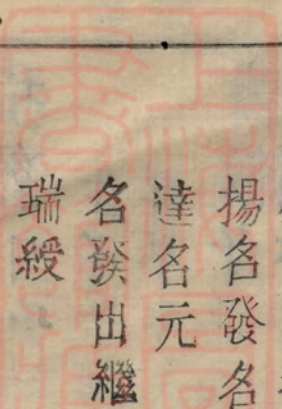 揚名發名
達名元
名發出繼
瑞綬